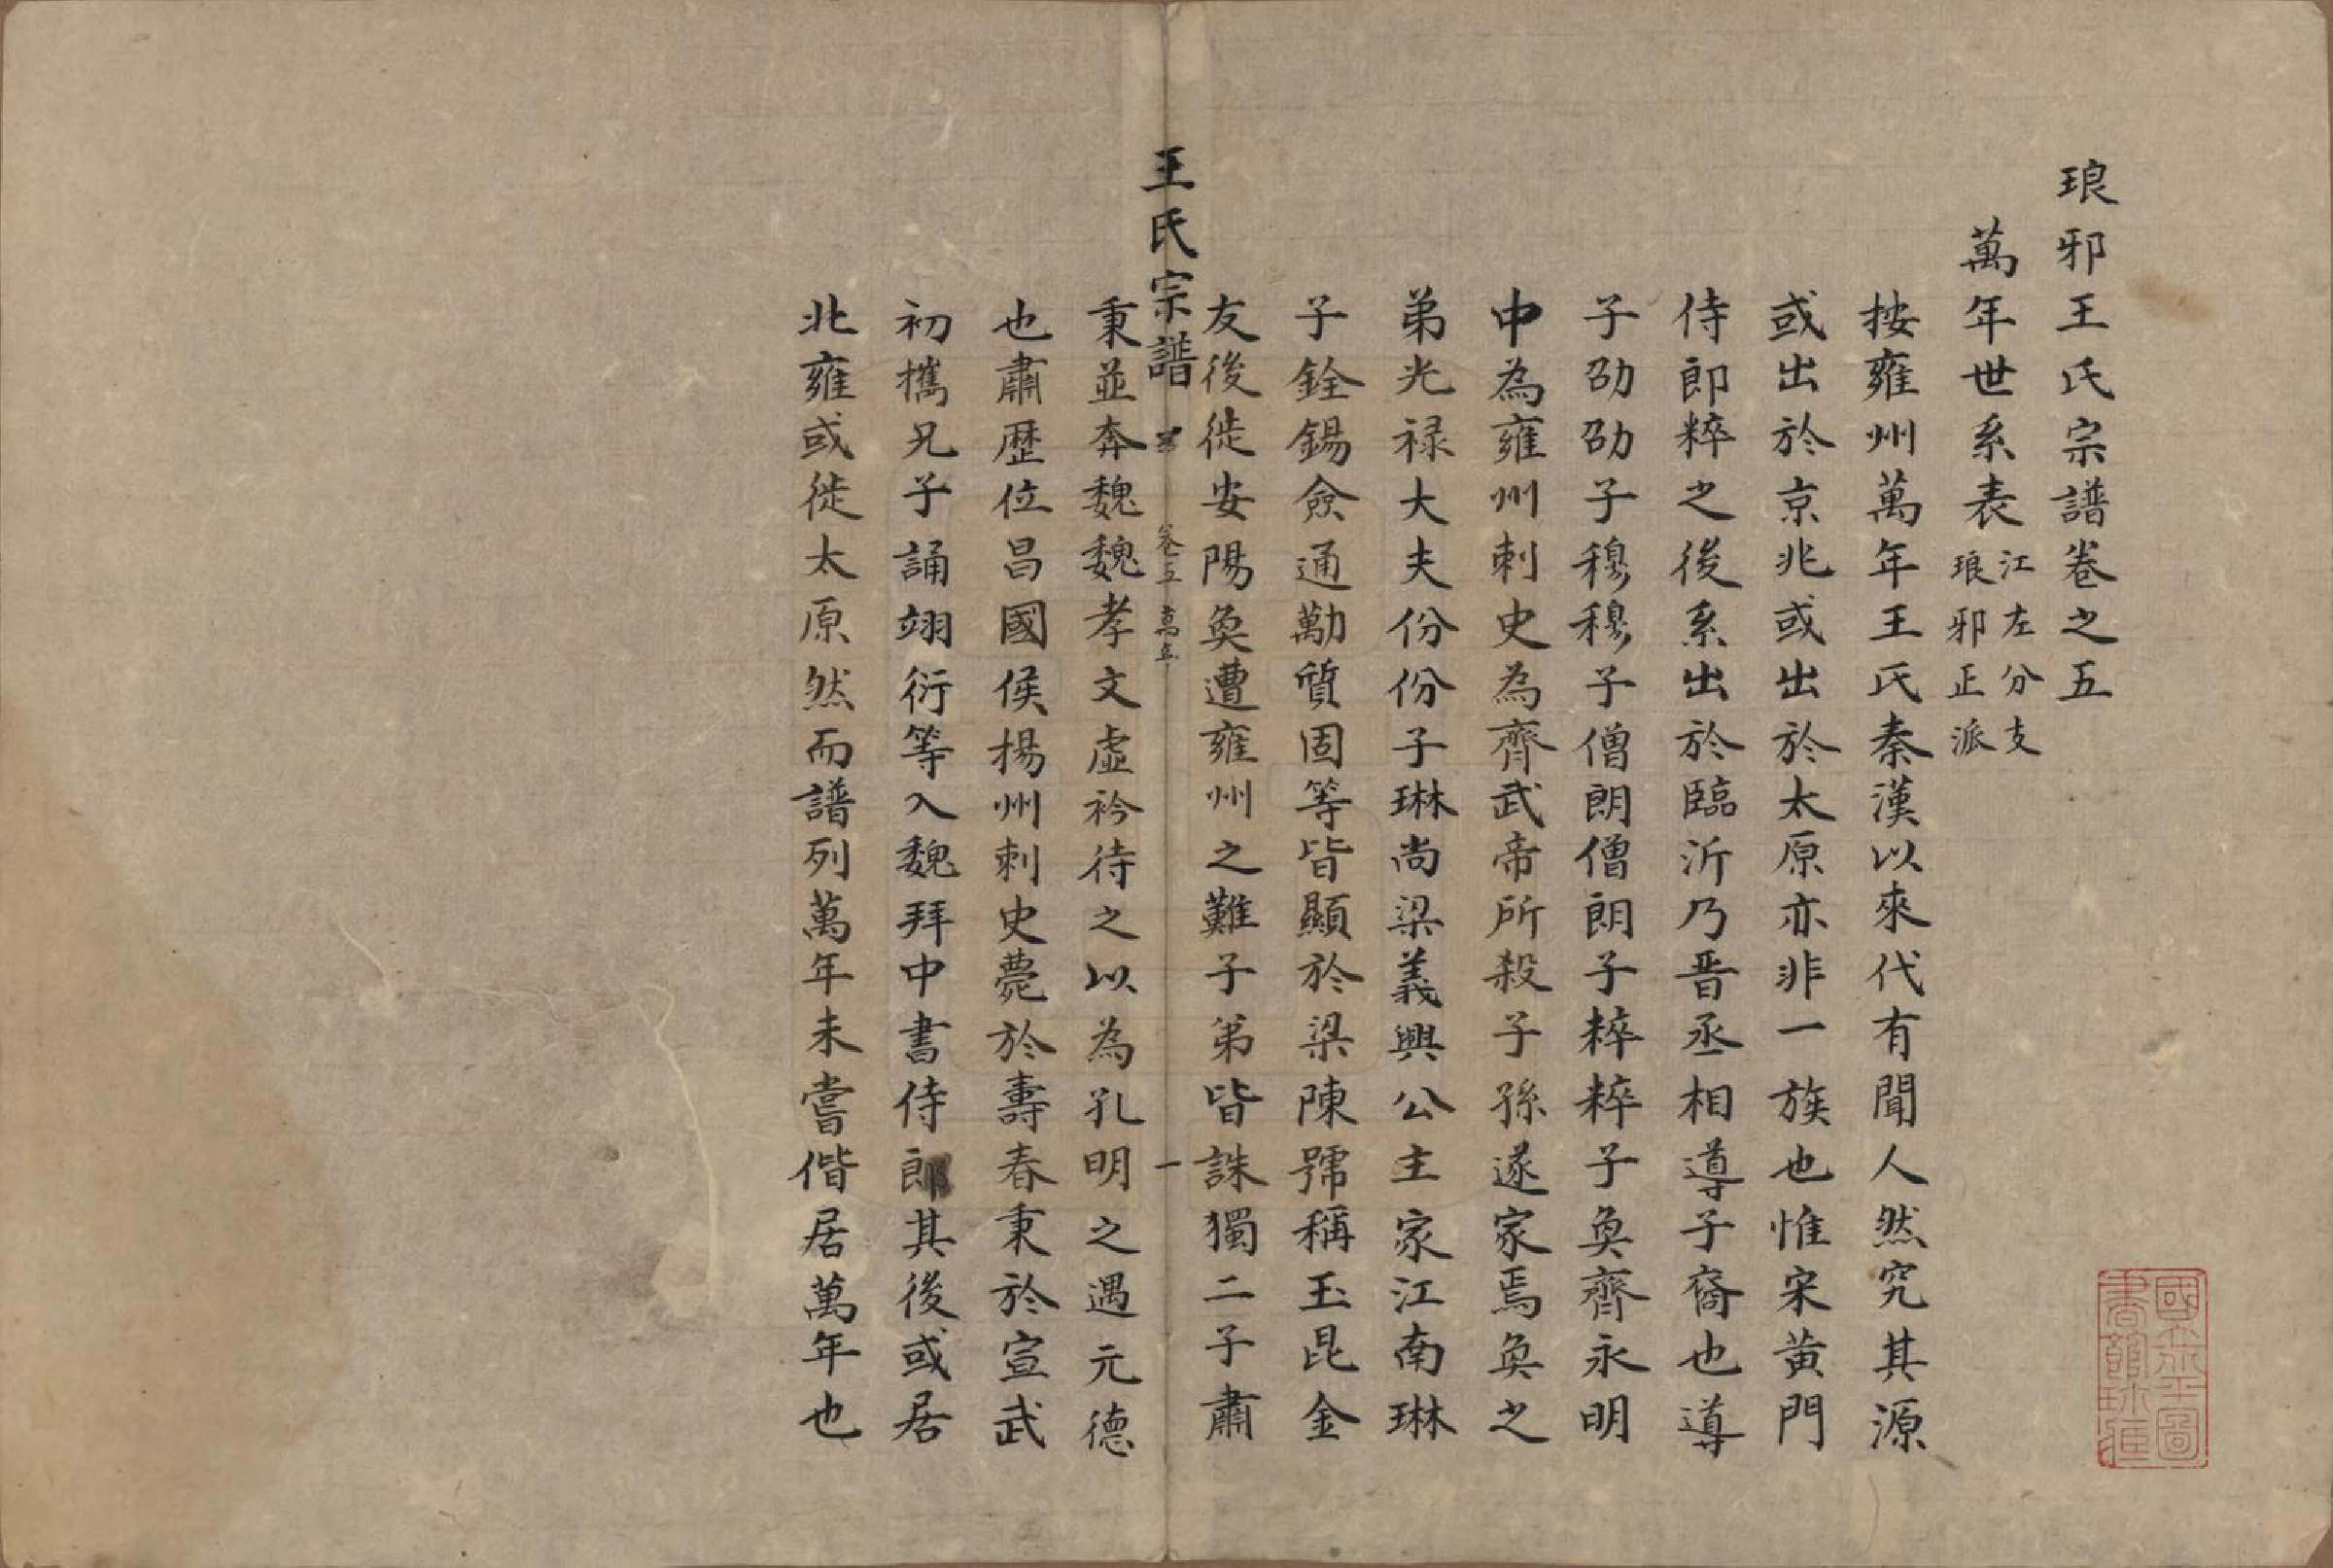 琅邪王氏宗譜卷之五
萬年世系表 江左分支 琅邪正派
按雍州萬年王氏秦漢以來代有聞人然究其源
或出於京兆或出於太原亦非一族也惟宋黄門
侍郎粹之後系出於臨沂乃晋丞相導子裔也導
子劭劭子穆穆子僧朗僧朗子粹粹子奐齊永明
中為雍州刺史為齊武帝所殺子孫遂家焉奐之
弟光禄大夫份份子琳尚梁義興公主家江南琳
子銓錫僉通勱質固等皆顯於梁陳號稱玉昆金
友後徙安陽奐遭雍州之難子弟皆誅獨二子肅
王氏宗譜 卷五 萬年 一
秉並奔魏魏孝文虛衿待之以為孔明之遇元德
也肅歷位昌國侯揚州刺史薨於壽春秉於宣武
初攜兄子誦翊衍等入魏拜中書侍郎其後或居
北雍或徙太原然而譜列萬年未嘗偕居萬年也
國立北平圖書館珍藏